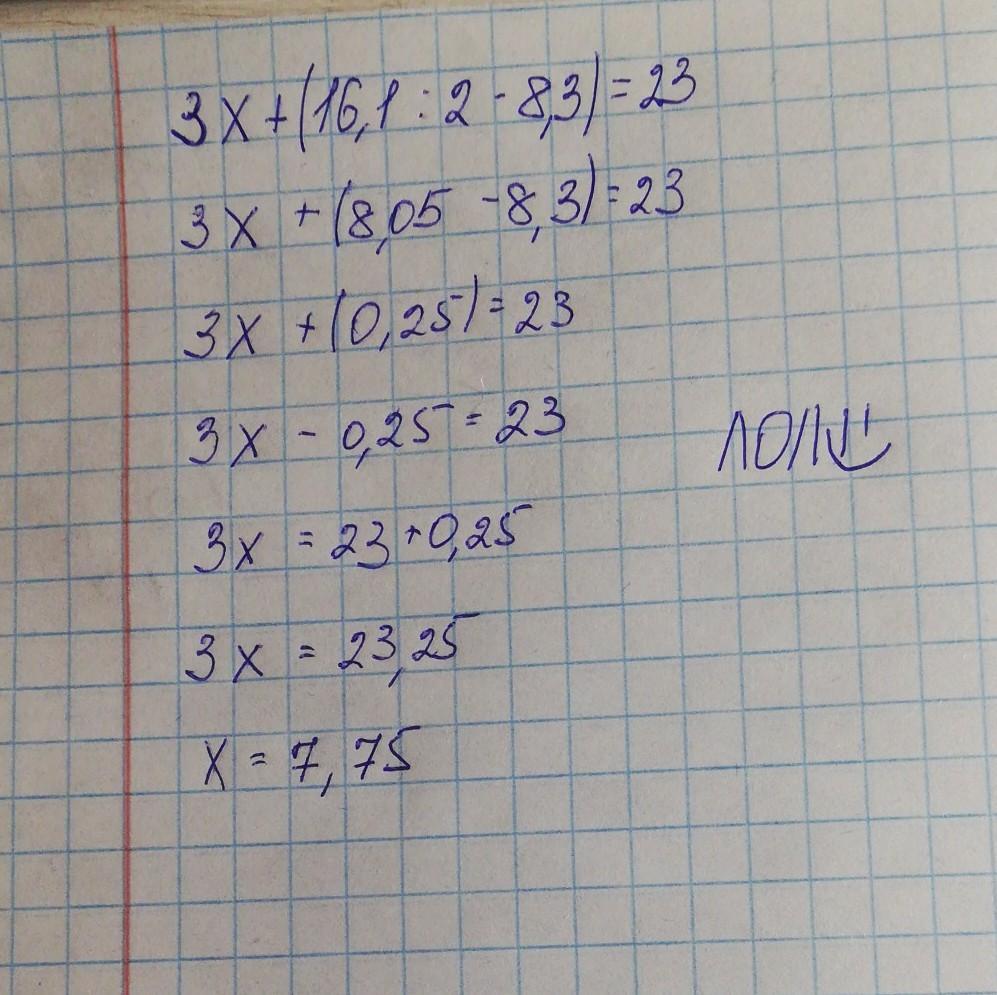 3x+(16,1:2-8,3)=23
3x+(8,05-8,3)=23
3x+(0,25)=23
3x-0,25=23
3x=23+0,25
3x=23,25
x=7,75